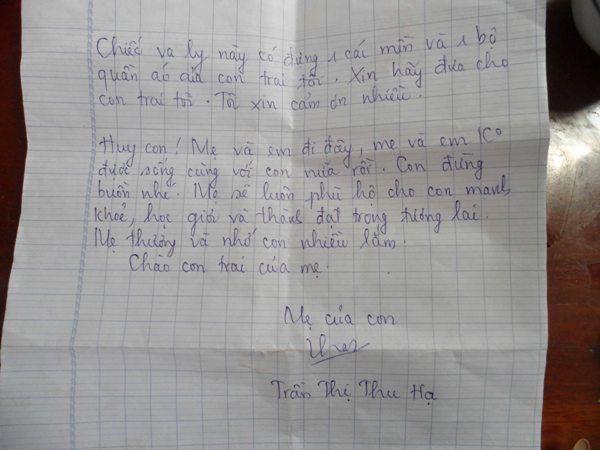 Chiếc va ly này có đựng 1 cái mền và 1 bộ
quần áo của con trai tôi. Xin hãy đưa cho
con trai tôi. Tôi xin cảm ơn nhiều.
Huy con! Mẹ và em đi đây, mẹ và em Ko
được sống cùng với con nữa rồi. Con đừng
buồn nhé. Mẹ sẽ luôn phù hộ cho con mạnh
khoẻ, học giỏi và thành đạt trong tương lai.
Mẹ thương và nhớ con nhiều lắm.
Chào con trai của mẹ.
Mẹ của con
Trần Thị Thu Hạ